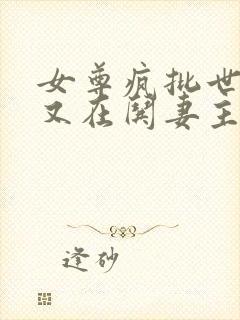 女尊疯批世
又在鬨妻主
逢砂